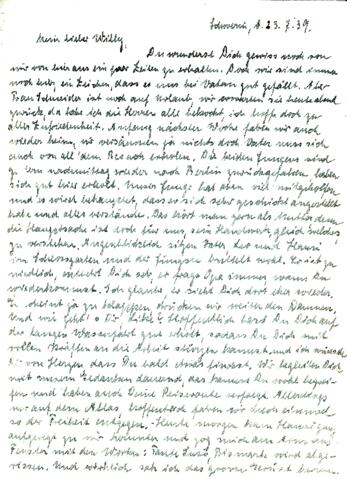 Schwerin, d. 23. 7. 39.
Mein lieber Willy,
Du wunderst Dich gewiss noch von
mir von hier aus ein paar Zeilen zu erhalten. Doch wir sind immer
noch hier, ein Zeichen, dass es uns bei Vatern gut gefällt. Aber
Frau Schneider ist noch auf Urlaub, wir erwarten sie heute abend
zurück, da habe ich die Herren alle bekocht, ich hoffe doch zu
aller Zufriedenheit. Anfang nächster Woche fahren wir auch
wieder heim, wir versäumen ja nichts doch Vater muss sich
auch von all dem Besuch erholen. Die beiden Jungens sind
gestern nachmittag wieder nach Berlin zurückgefahren, haben
sich gut hier erholt. Unser Junge hat aber viel mitgeholfen
und es wird behauptet, dass er sich sehr geschickt angestellt
habe und alles verstände. Das hört man gern als Mutter, denn
die Hauptsache ist doch für uns, sein Handwerk, gleich welches
zu verstehen. Augenblicklich sitzen Vater, Leo und Hansi
im Schlossgarten und der Jüngste buddelt wohl. Er ist zu
niedlich, entsinnt Dich oder, er fragt Opa immer wann Du
wiederkommst. Ich glaube er sieht Dich doch eher wieder.
Es scheint ja zu klappen, drücken wir weiter den Daumen.
Und wie geht's Dir? Hoffentlich hast Du Dich auf
der langen Wasserfahrt gut erholt, sodass Du Dich mit
vollen Kräften an die Arbeit stürzen kannst, und ich wünsche
Dir von Herzen dass Du bald etwas findest. Wir begleiten Dich
mit unseren Gedanken dauernd, das kannst Du wohl begreifen
und haben auch Deine Reiseroute verfolgt. Allerdings
nur auf dem Atlas, hoffentlich fahren wir doch einmal
so der Freiheit entgegen. Heute morgen kam Hansi ganz
aufgeregt zu mir und zog mich am Arm ans
Fenster mit den Worten: Tante Suse, Bismarck wird abgerissen.
Und wirklich sah ich das grosse Gerüst